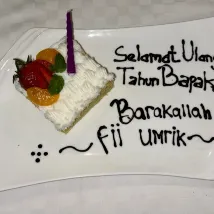 Selamat Ulang
Tahun Bapak
Barakallah
~ fii umrik ~